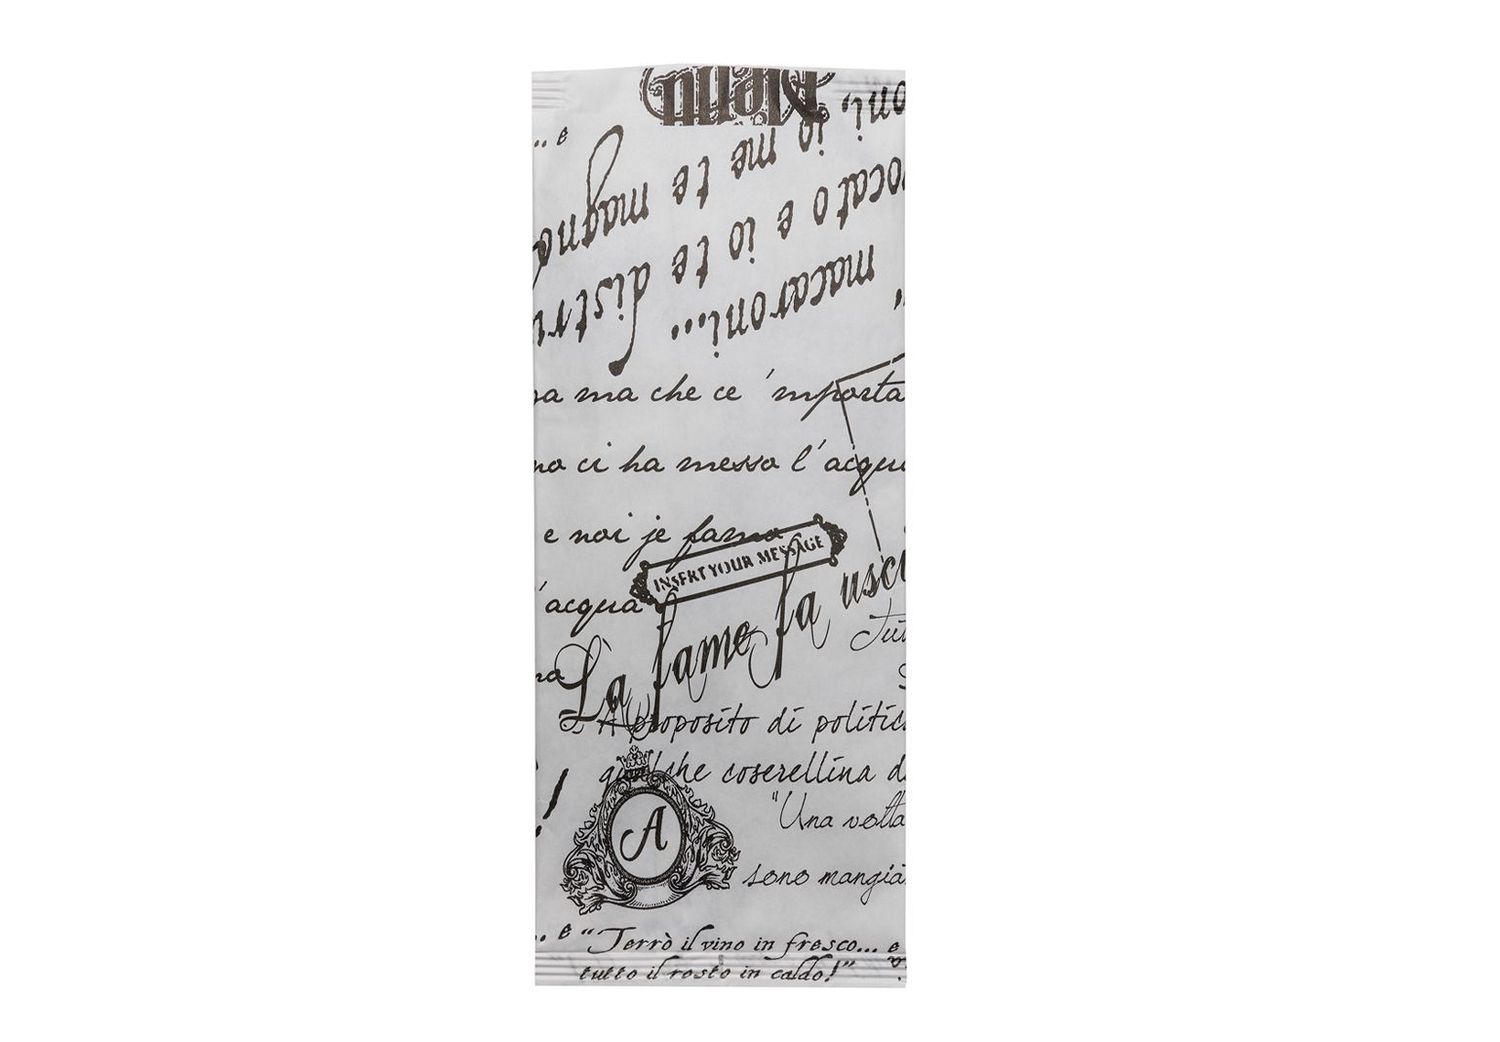 Menu
... e
io me te magno
oni,
ocato e io te distru
macaroni...
"
sa ma che ce 'mporta
no ci ha messo l'acqu
e noi je famo
INSERT YOUR MESSAGE
'acqua
La fame fa usci
Tut
na
A proposito di politic
qualche coserellina d
!
"Una volta
A
sono mangia
... e
"Terrò il vino in fresco... e
tutto il resto in caldo!"